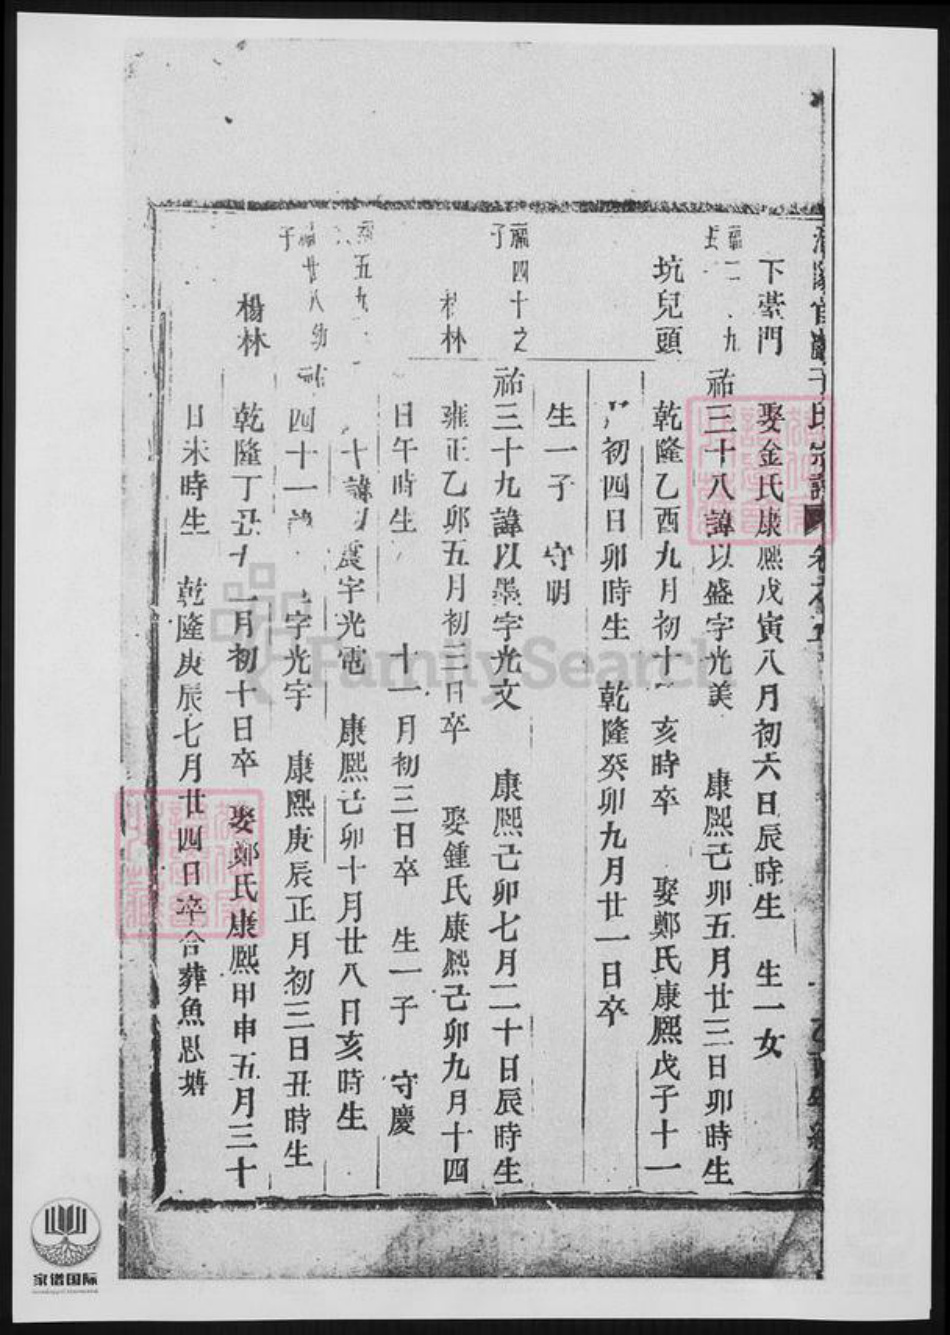 氏宗譜
下臺門
娶金氏康熙戊寅八月初六日辰時生 生一女
祐三十八諱以盛字光美 康熙己卯五月廿三日卯時生
坑兒頭
乾隆乙酉九月初十 亥時卒 娶鄭氏康熙戊子十一
初四日卯時生 乾隆癸卯九月廿一日卒
生一子 守明
福四十之子
祐三十九諱以墨字光文 康熙己卯七月二十日辰時生
林
雍正乙卯五月初三日卒 娶鍾氏康熙己卯九月十四
日午時生 十一月初三日卒 生一子 守慶
五九
十諱 震字光電 康熙己卯十月廿八日亥時生
廿八幼子
祐四十一 字光宇 康熙庚辰正月初三日丑時生
楊林
乾隆丁丑十一月初十日卒 娶鄭氏康熙甲申五月三十
日未時生 乾隆庚辰七月廿四日卒合葬魚思塘
FamilySearch
家谱国际